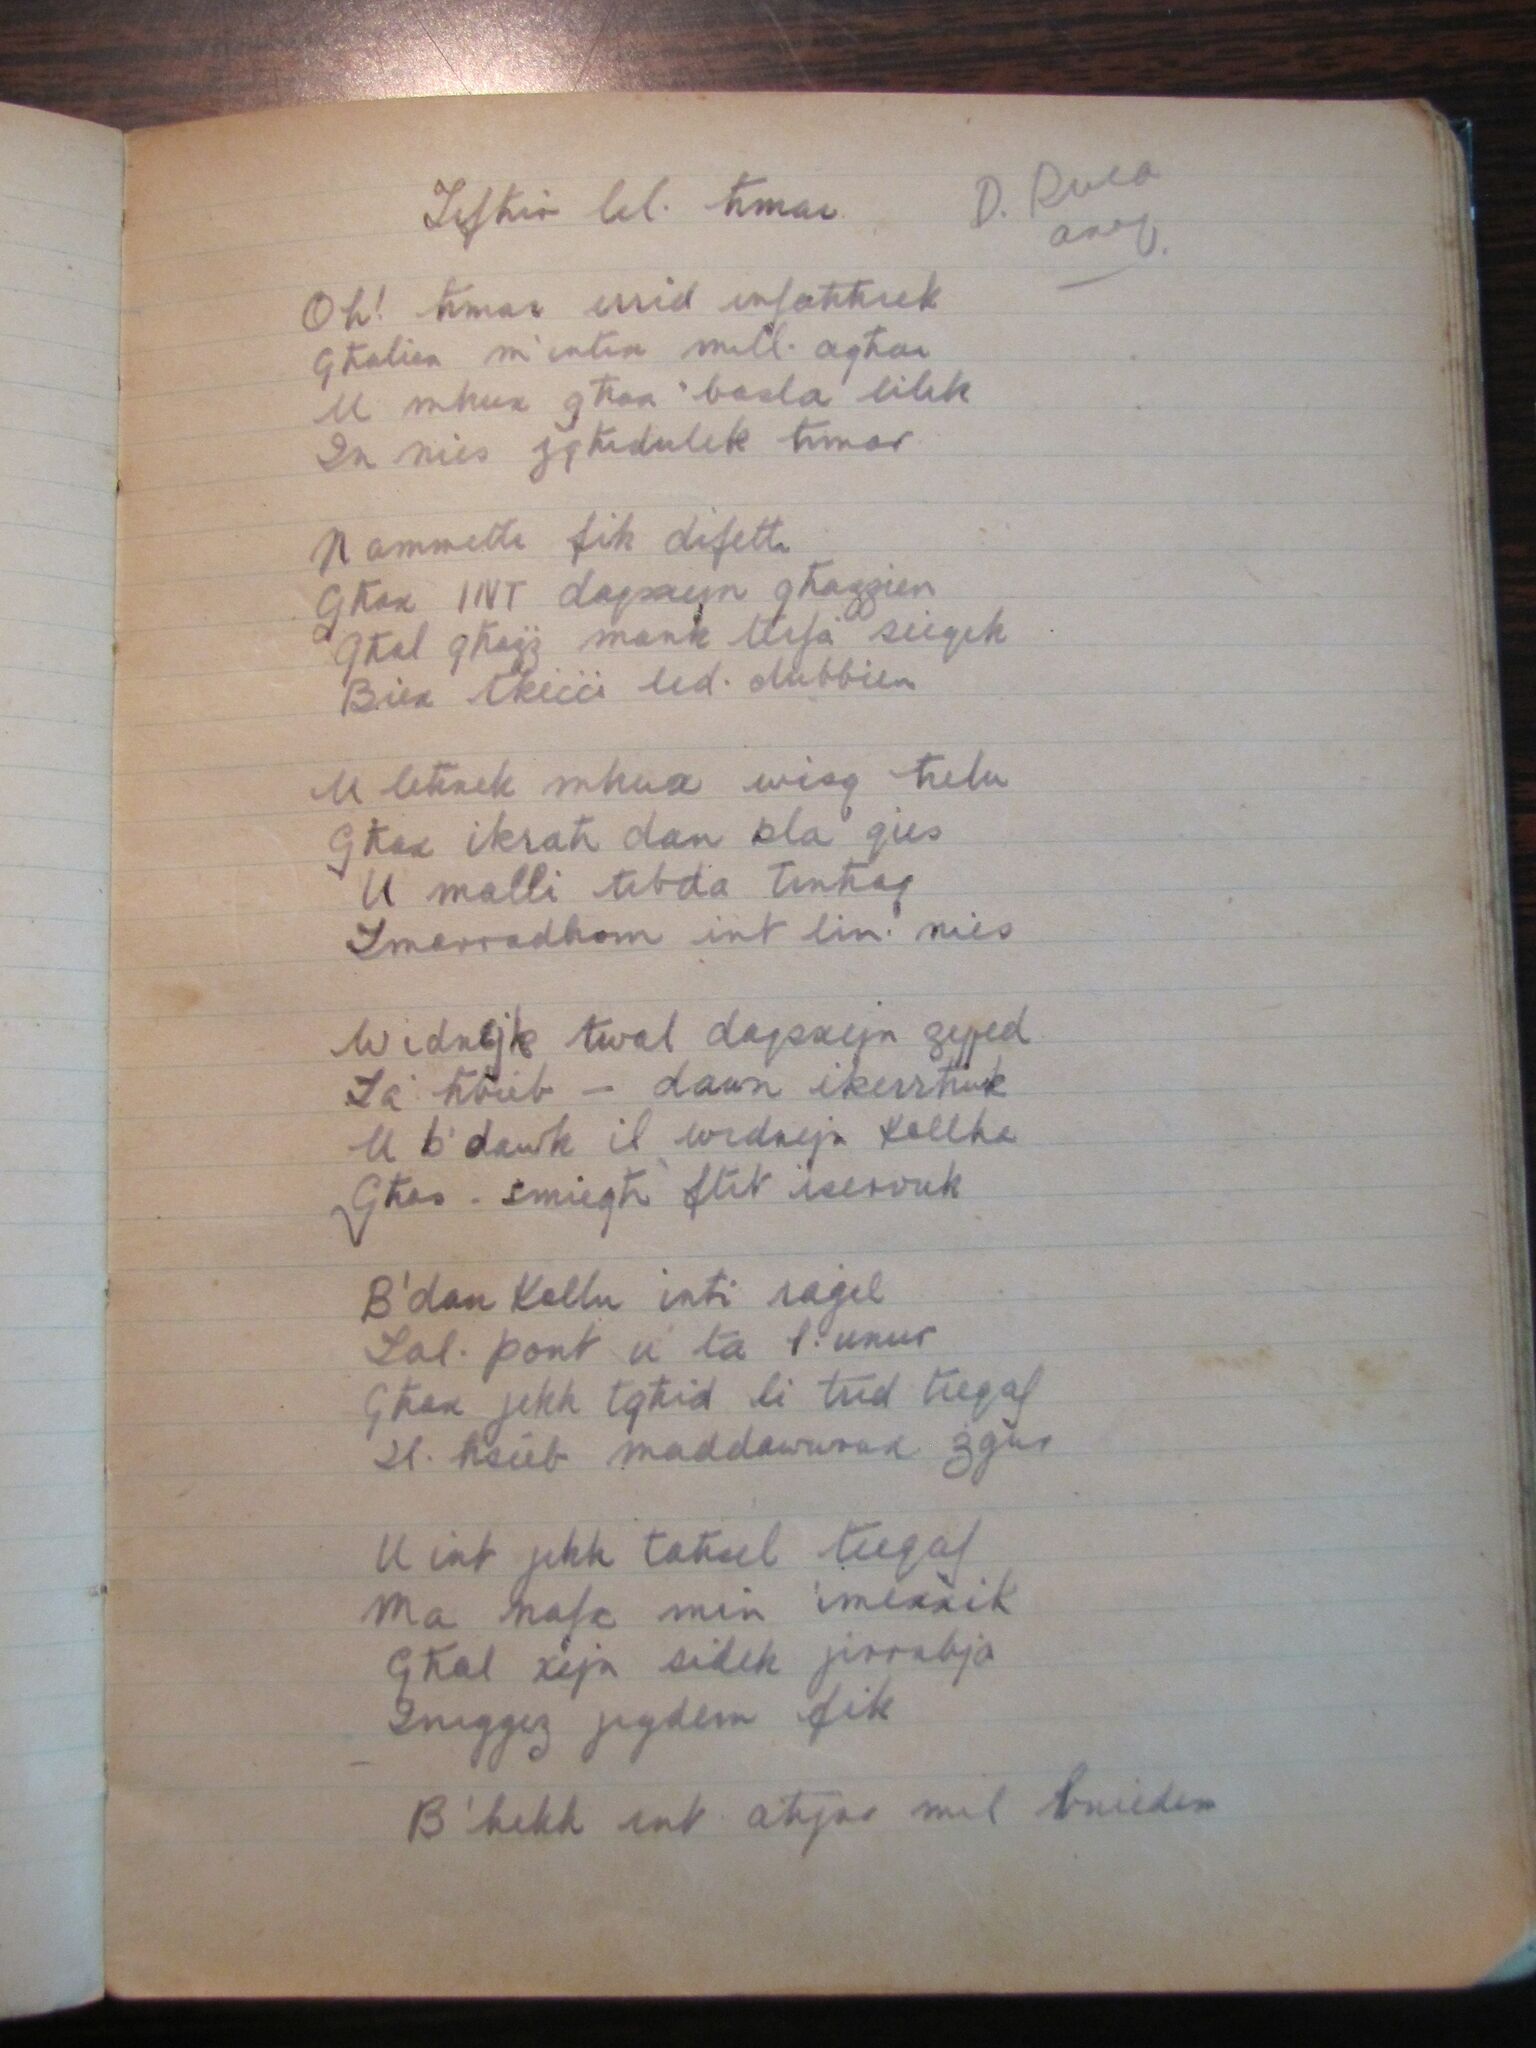 Tifħir lil. ħmar
D. Rvea
anon.
Oh! ħmar irrid infaħħrek
Għaliex m'intix mill. agħar
U mhux għax' basla lilek
In nies jgħidulek ħmar
Nammetti fik difetti
Għax INT dapxejn għażżien
Għal għajż mank terfa' sieqek
Biex tkeċċi id. dubbien
U leħnek mhux wisq ħelu
Għax ikraħ dan bla' qies
U malli tibda tinħaq
Imarradhom int lin. nies
Widnejk twal dapxejn żejjed
Ja' ħbieb – dawn ikerrhuk
U b'dawk il widnejn kollha
Għas. smiegħ ftit iservuk
B'dan kollu inti raġel
Tal. pont u ta l. unur
Għax jekk tgħid li trid tieqaf
Il. ħsieb maddawwrux żgur
U int jekk taħsel tieqaf
Ma nafx min imexxik
Għal xejn sidek jirrabja
Iniggeż jigdem fik
B'hekk int aħjar mil bniedem